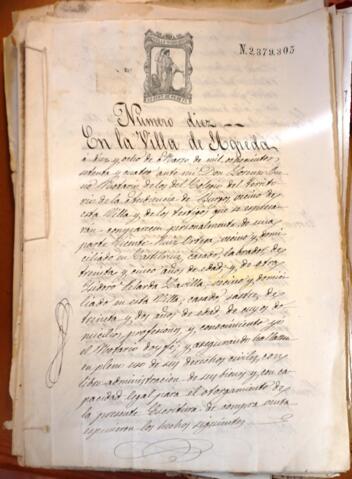 N. 2,379,303
Número diez
En la Villa de Agreda
á diez y ocho de Marzo de mil ochocientos
setenta y cuatro ante mi Don Lorenzo
Notario de los del Colegio del territo
rio de la Audiencia de Burgos, vecino de
esta Villa y de los testigos que se espresa
rán comparecen personalmente de una
parte Vicente Ruiz vecino y domi
ciliado en casado, labrador, de
treinta y cinco años de edad, y de otra
Isidoro vecino y domici
liado en esta Villa, casado, sastre, de
treinta y dos años de edad de cuyos do
micilios, profesiones, y conocimiento yo
el Notario doy fé, y asegurando hallarse
en pleno uso de sus derechos civiles, con
libre administracion de sus bienes y con ca
pacidad legal para el otorgamiento de
la presente Escritura de compra venta
espusieron los hechos siguientes